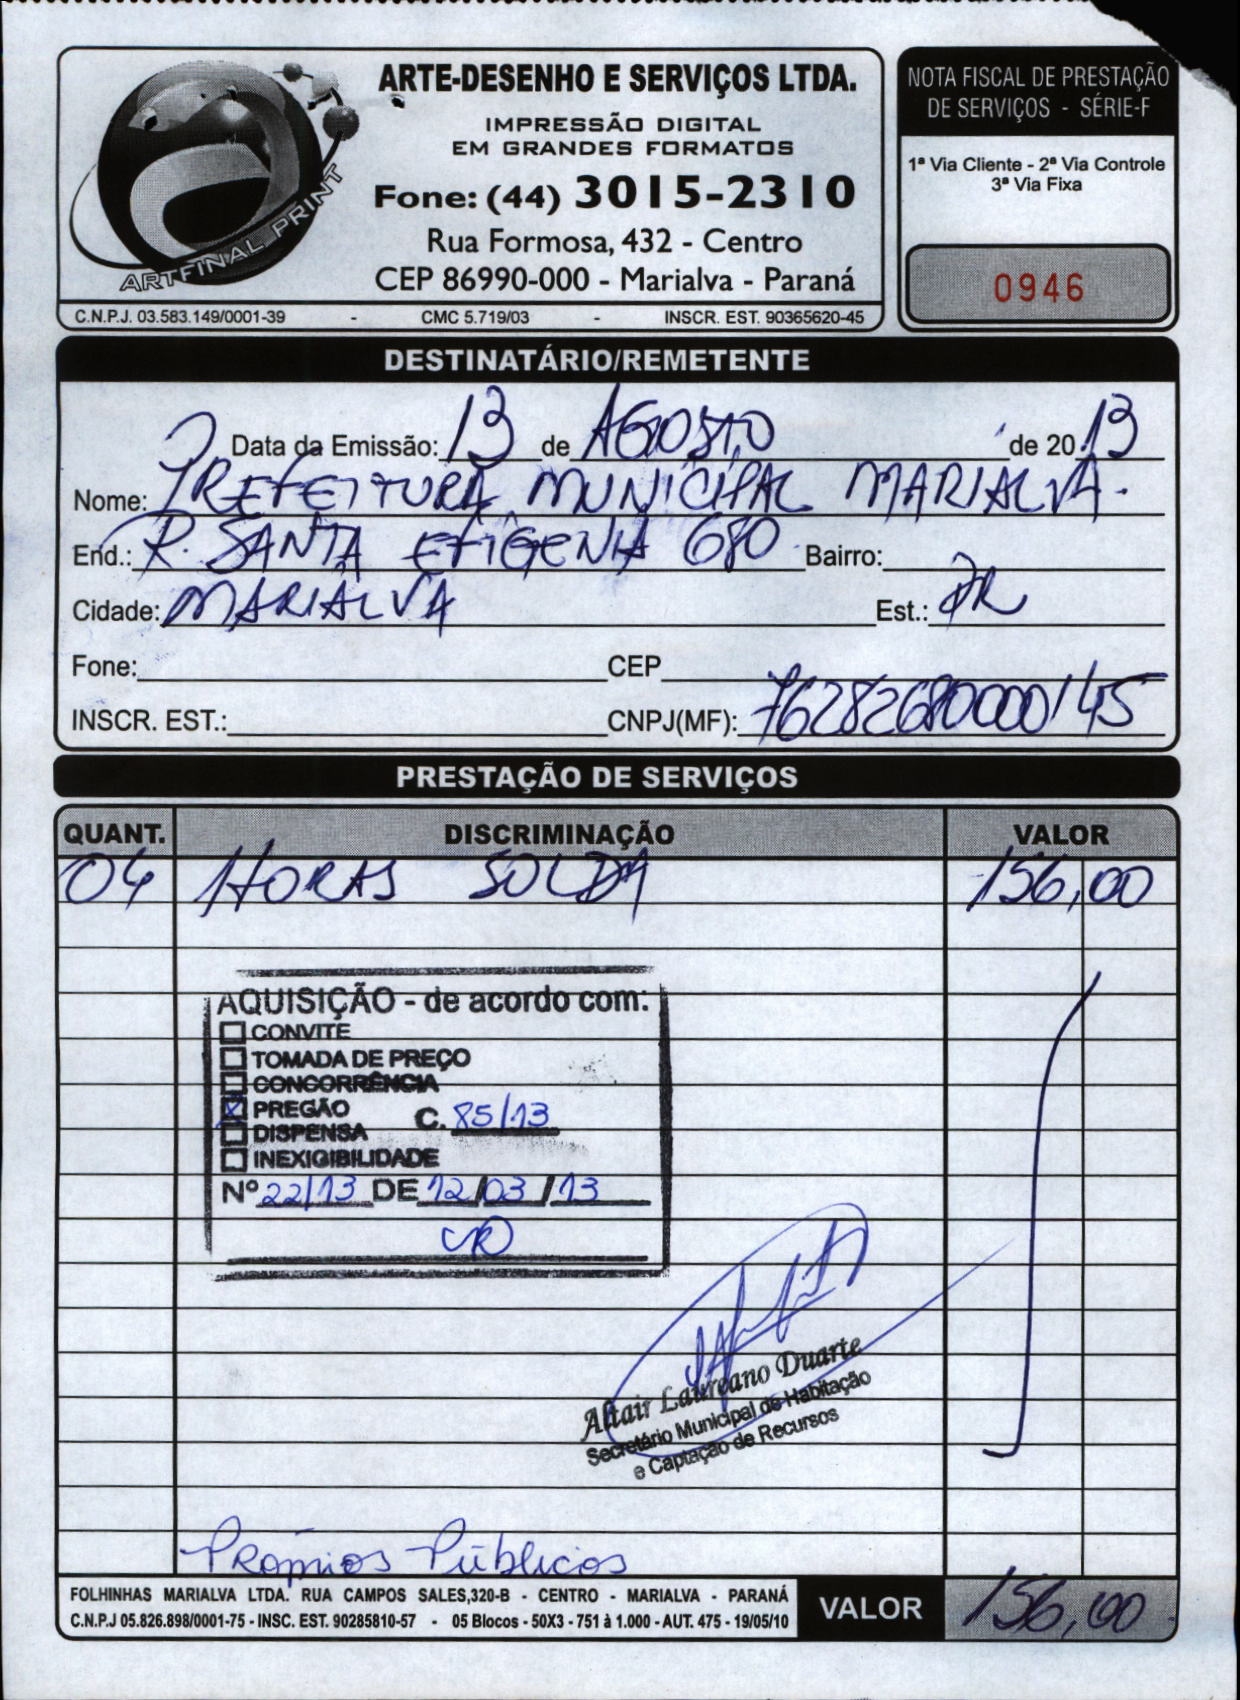 ARTE-DESENHO E SERVIÇOS LTDA.
IMPRESSÃO DIGITAL
EM GRANDES FORMATOS
Fone: (44) 3015-2310
Rua Formosa, 432 - Centro
CEP 86990-000 - Marialva - Paraná
ARTFINAL PRINT
C.N.P.J. 03.583.149/0001-39 - CMC 5.719/03 - INSCR. EST. 90365620-45
NOTA FISCAL DE PRESTAÇÃO
DE SERVIÇOS - SÉRIE-F
1ª Via Cliente - 2ª Via Controle
3ª Via Fixa
0946
DESTINATÁRIO/REMETENTE
Data da Emissão: 13 de AGOSTO de 2013
Nome: PREFEITURA MUNICIPAL MARIALVA.
End.: R. SANTA EFIGENIA 680 Bairro:
Cidade: MARIALVA Est.: PR
Fone: CEP
INSCR. EST.: CNPJ(MF): 76282680000145
PRESTAÇÃO DE SERVIÇOS
QUANT. DISCRIMINAÇÃO VALOR
04 HORAS SOLDA 156,00
AQUISIÇÃO - de acordo com:
CONVITE
TOMADA DE PREÇO
CONCORRÊNCIA
X PREGÃO C. 85/13
DISPENSA
INEXIGIBILIDADE
Nº 22/13 DE 12/03/13
Altair Laureano Duarte
Secretário Municipal de Habitação
e Captação de Recursos
Públicos
FOLHINHAS MARIALVA LTDA. RUA CAMPOS SALES,320-B - CENTRO - MARIALVA - PARANÁ
C.N.P.J 05.826.898/0001-75 - INSC. EST. 90285810-57 - 05 Blocos - 50X3 - 751 à 1.000 - AUT. 475 - 19/05/10
VALOR 156,00